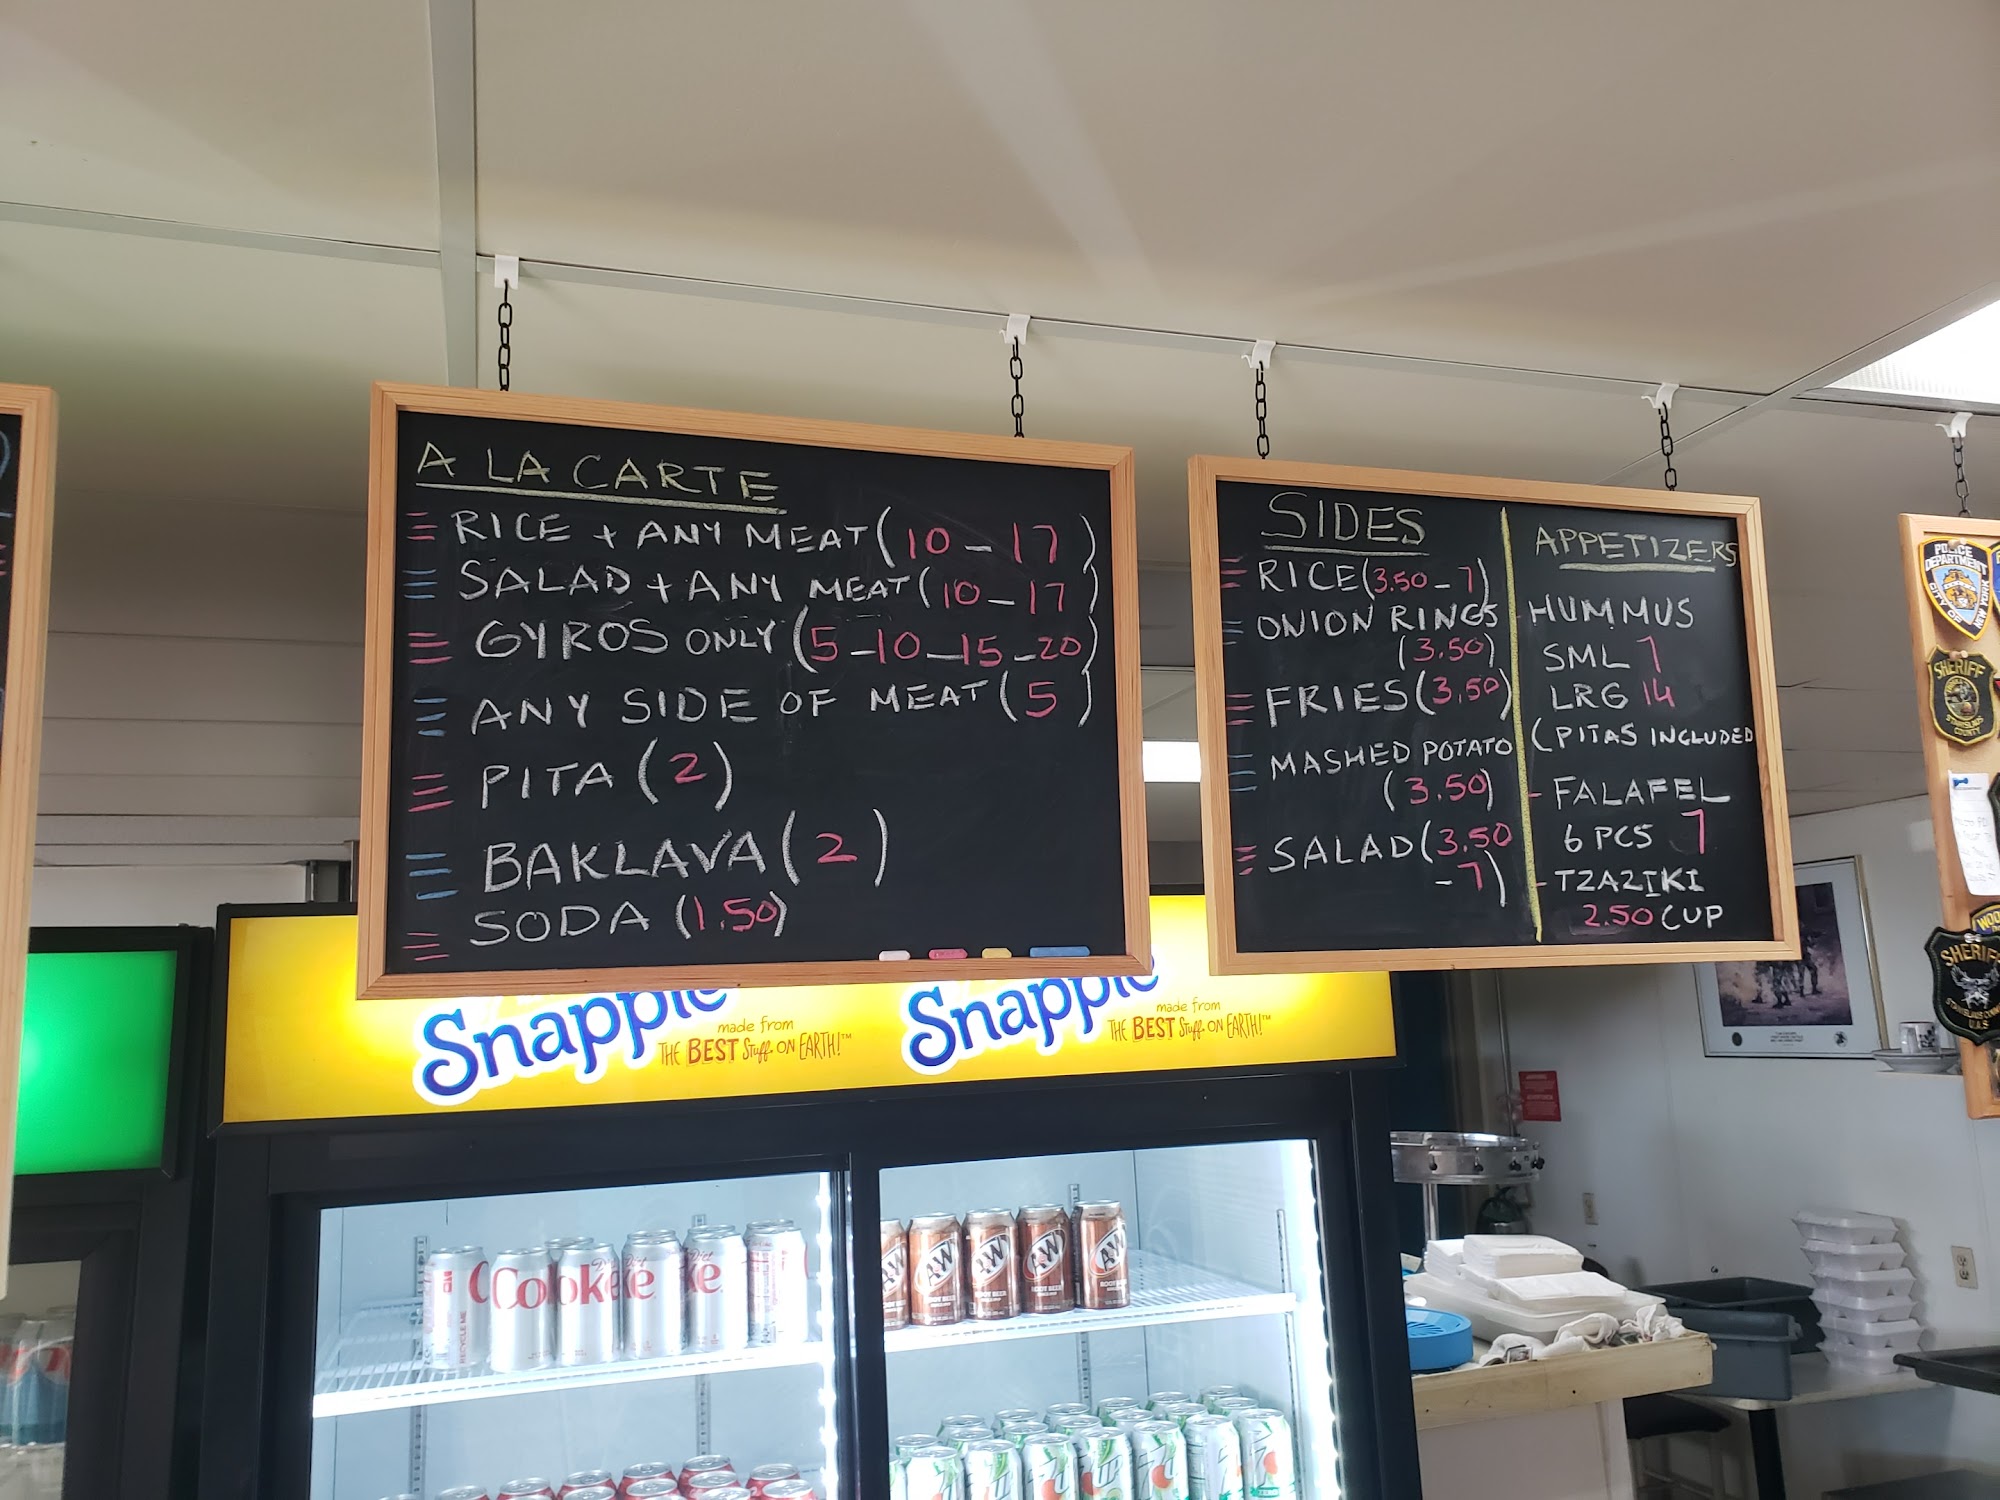 A LA CARTE
RICE + ANY MEAT (10 - 17)
SALAD + ANY MEAT (10 - 17)
GYROS ONLY (5 - 10 - 15 - 20)
ANY SIDE OF MEAT (5)
PITA (2)
BAKLAVA (2)
SODA (1.50)
SIDES
RICE (3.50 - 7)
ONION RINGS
(3.50)
FRIES (3.50)
MASHED POTATO
(3.50)
SALAD (3.50
- 7)
APPETIZERS
- HUMMUS
SML 7
LRG 14
(PITAS INCLUDED
- FALAFEL
6 PCS 7
- TZAZIKI
2.50 CUP
Snapple
made from
THE BEST Stuff ON EARTH!™
Snapple
made from
THE BEST Stuff ON EARTH!™
POLICE
DEPARTMENT
CITY OF NEW YORK
SHERIFF
STANISLAUS
COUNTY
SHERIFF
STANISLAUS COUNTY
U.A.S
A&W
ROOT BEER
A&W
ROOT BEER
A&W
ROOT BEER
A&W
ROOT BEER
RECYCLE ME